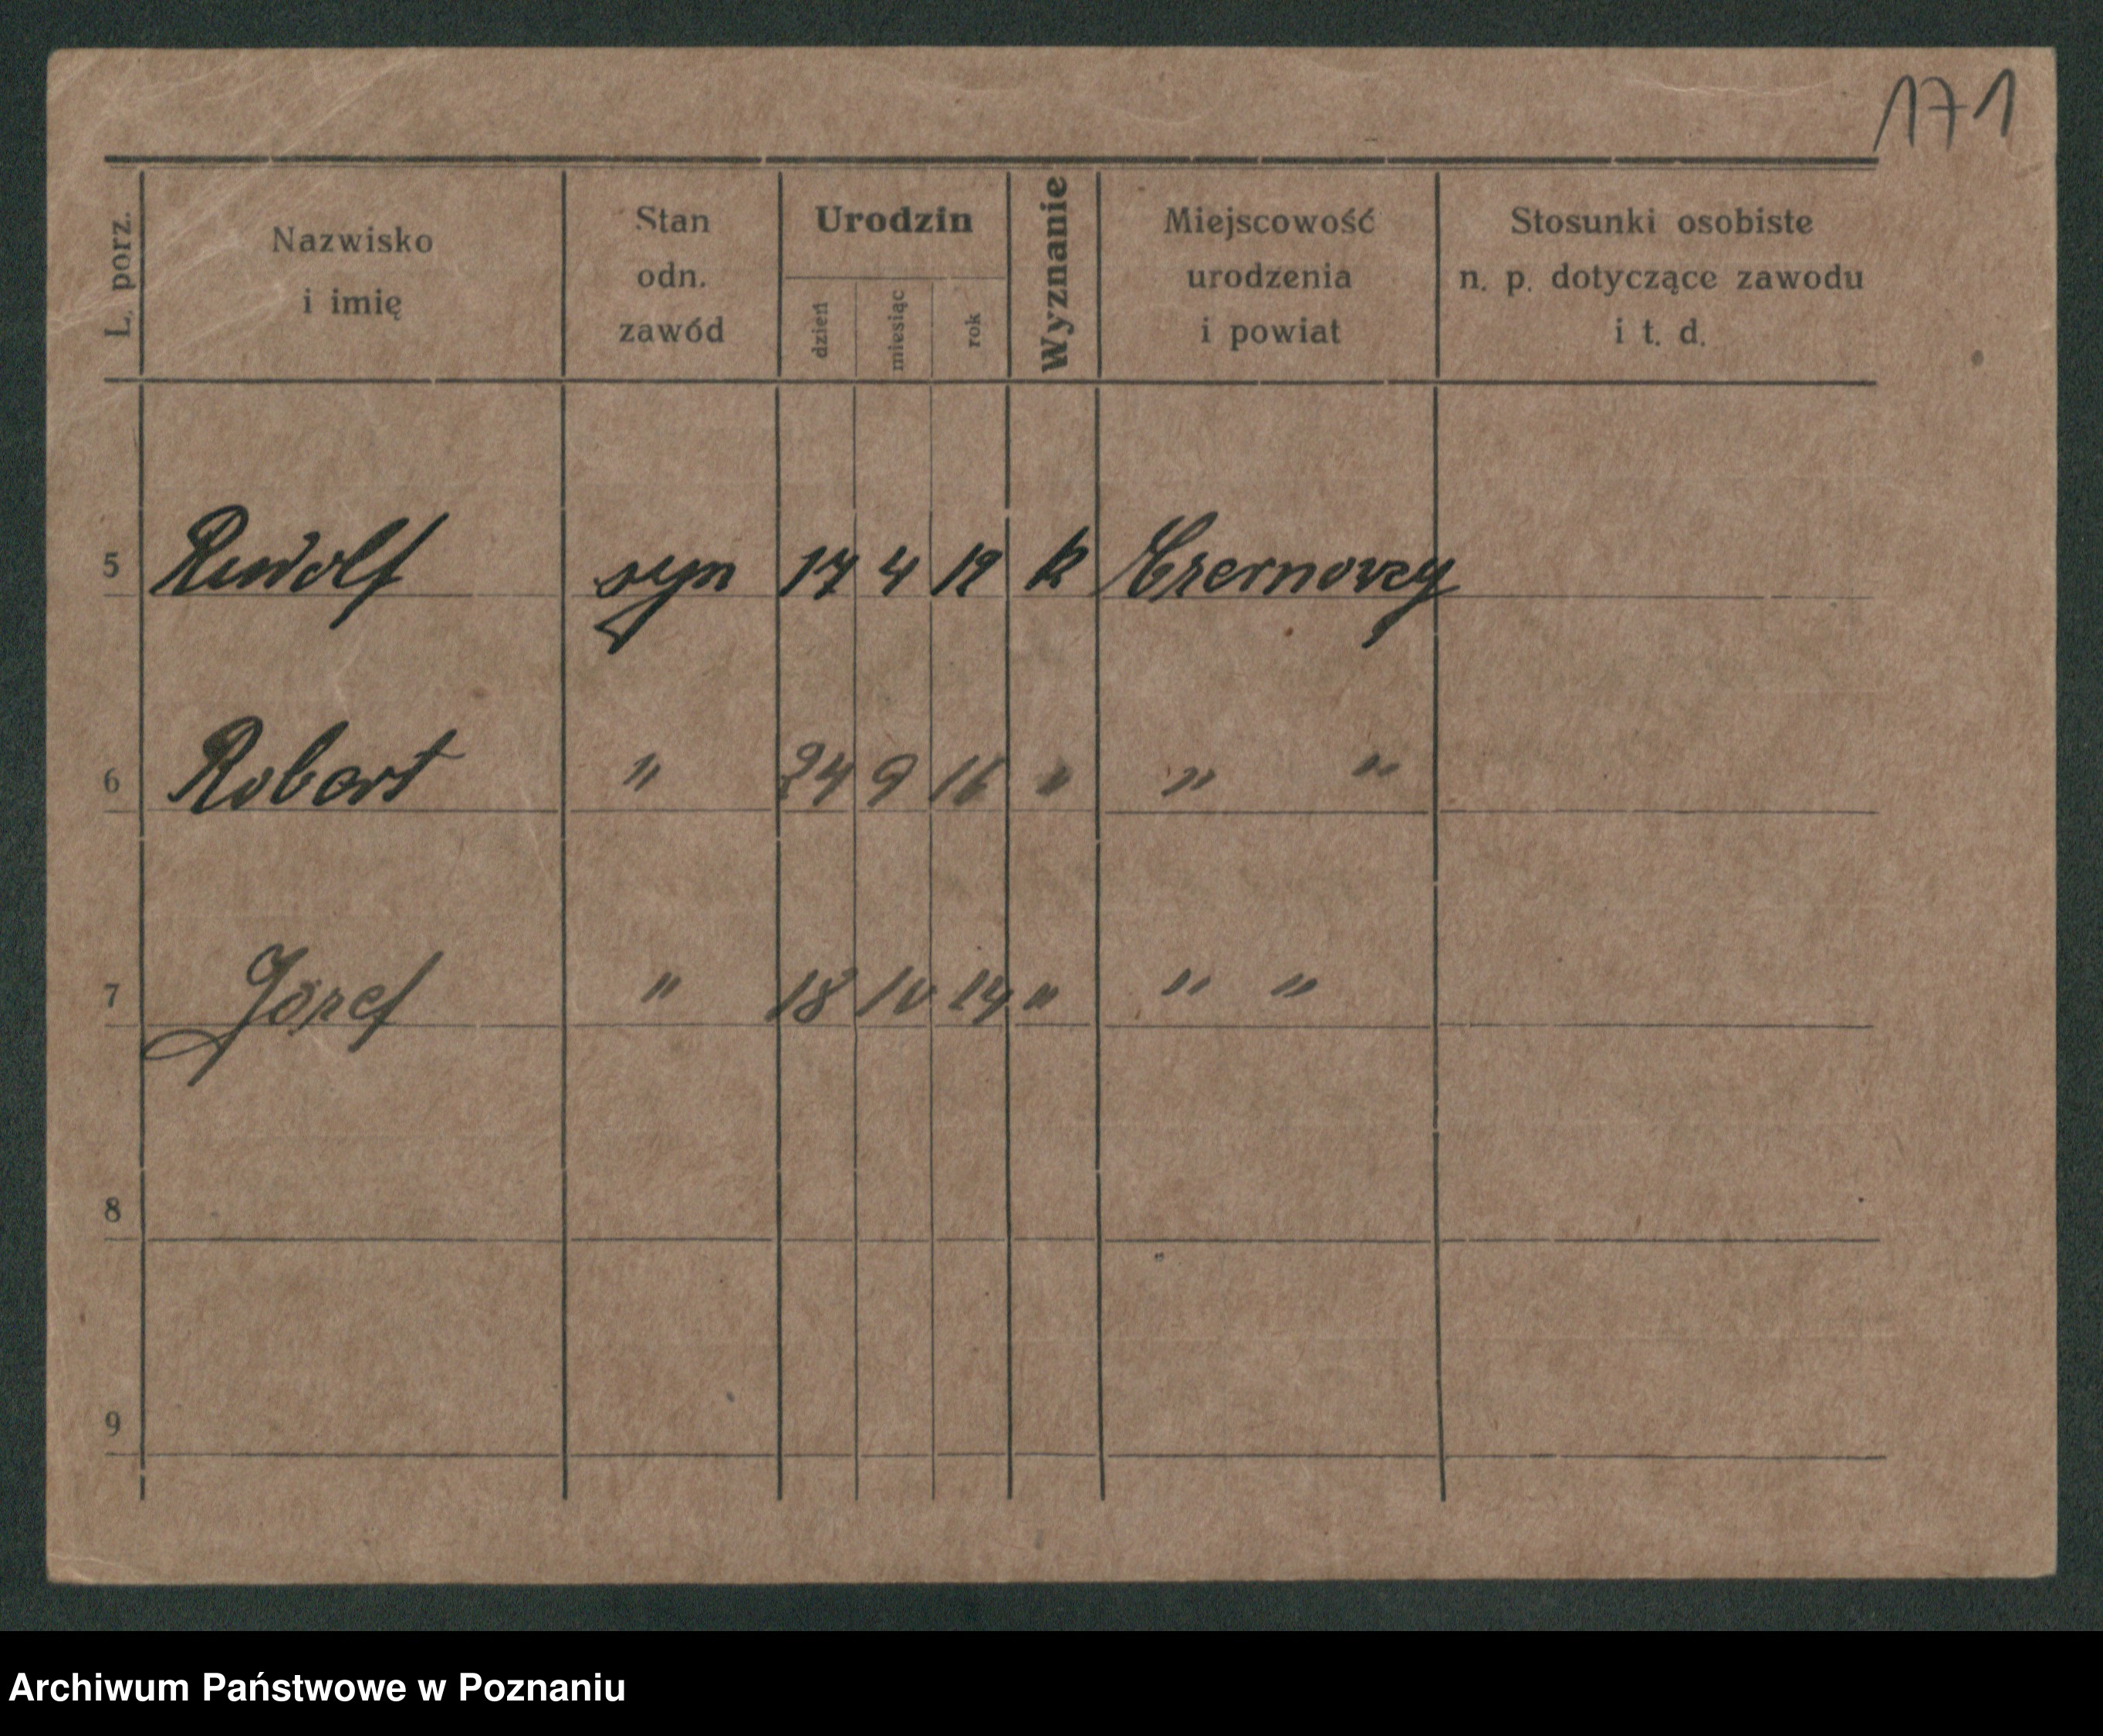 171
L. porz.
Nazwisko
i imię
Stan
odn.
zawód
Urodzin
dzień
miesiąc
rok
Wyznanie
Miejscowość
urodzenia
i powiat
Stosunki osobiste
n. p. dotyczące zawodu
i t. d.
5 Rudolf syn 17 4 12 k
6 Robert " 24 9 16 " " "
7 Józef " 18 10 14 " " "
8
9
Archiwum Państwowe w Poznaniu